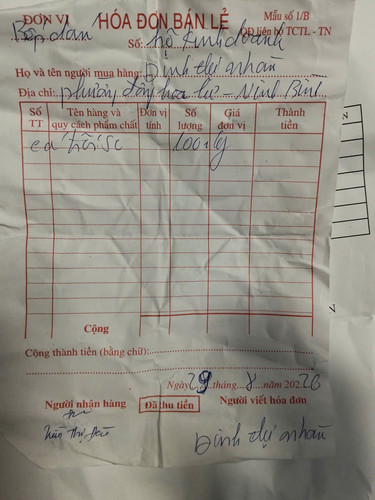 ĐƠN VỊ HÓA ĐƠN BÁN LẺ Mẫu số 1/B
Bếp dân Số: hộ kinh doanh QĐ liên bộ TCTL - TN
Họ và tên người mua hàng: Đinh thị nhàn
Địa chỉ: phường đông hoa lư - Ninh Bình
Số TT Tên hàng và quy cách phẩm chất Đơn vị tính Số lượng Giá đơn vị Thành tiền
100
Cộng
Cộng thành tiền (bằng chữ):
Ngày 29 tháng 8 năm 2026
Người nhận hàng Đã thu tiền Người viết hóa đơn
Đinh thị nhàn